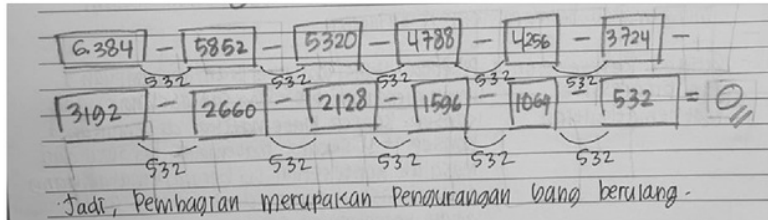 6.384 - 5852 - 5320 - 4788 - 4256 - 3724 -
532 532 532 532 532
3192 - 2660 - 2128 - 1596 - 1064 - 532 = 0
532 532 532 532 532
Jadi, Pembagian merupakan Pengurangan yang berulang.